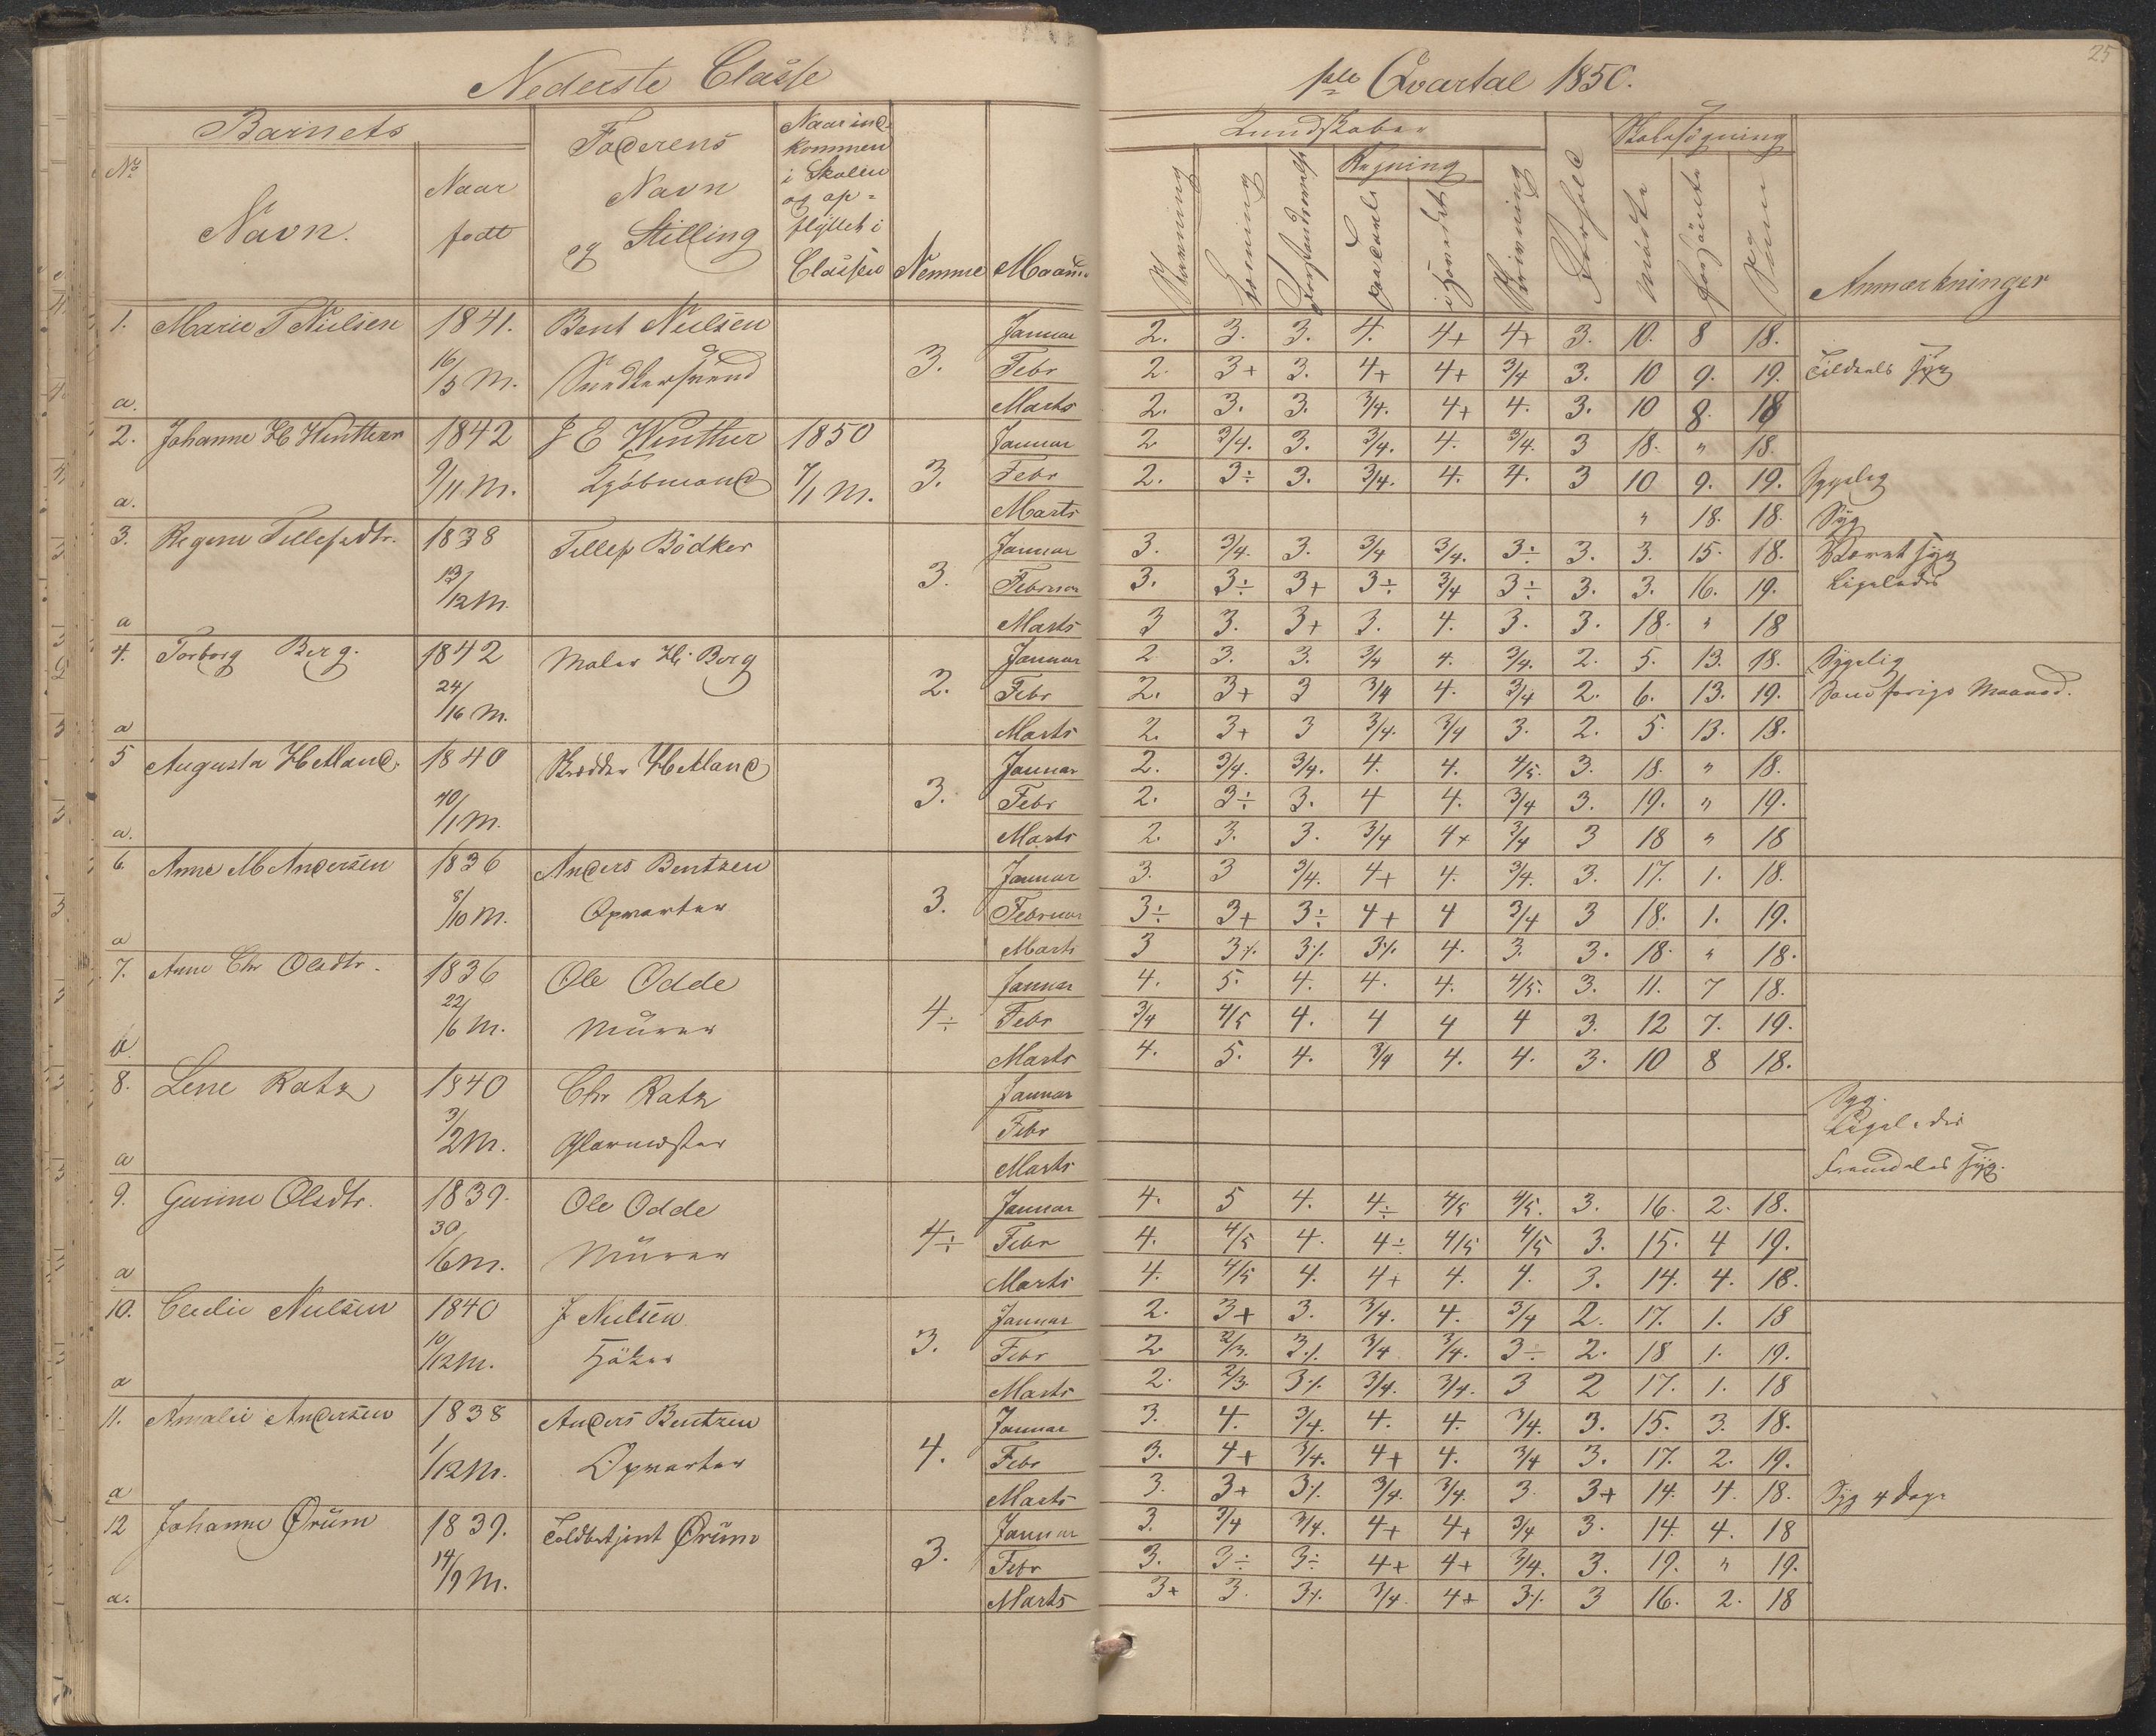 Nederste Classe
1ste Qvartal 1850.
25
Barnets
No
Navn.
Naar
født
Faderens
Navn
og Stilling
Naar ind-
kommen
i Skolen
og op-
flyttet i
Classen
Nemme
Maaned
Kundskaber
Skolesøgning
Regning
Skrivning
Forhold
mødte
forsömte
Sum
Anmærkninger
1. Marie T Nielsen 1841. Bent Nielsen Januar 2. 3. 3. 4. 4+ 4+ 3. 10. 8 18.
16/5 M. Snedkersvend 3. Febr 2. 3+ 3. 4+ 4+ 3/4 3. 10 9. 19. Tildeels syg
a. Marts 2. 3. 3. 3/4. 4+ 4. 3. 10 8. 18
2. Johanne H Winther 1842 J E Winther 1850 Januar 2 3/4. 3. 3/4. 4. 3/4. 3 18. " 18.
9/11 M. Kjøbmand 7/1 M. 3. Febr 2. 3÷ 3. 3/4. 4. 4. 3 10 9. 19. Sygelig
a. Marts " 18. 18. Syg
3. Regine Tellefsdtr. 1838 Tellef Bödker Januar 3. 3/4. 3. 3/4 3/4. 3÷ 3. 3. 15. 18. Været syg
13/12 M. 3. Februar 3. 3÷ 3+ 3÷ 3/4 3÷ 3. 3. 16. 19. Ligeledes
a Marts 3 3. 3+ 3. 4. 3. 3. 18. " 18
4. Torborg Berg. 1842 Maler H. Berg Januar 2 3. 3. 3/4 4. 3/4. 2. 5. 13. 18. Sygelig
24/16 M. 2. Febr 2. 3+ 3 3/4 4. 3/4 2. 6. 13. 19. Som forige Maaned.
a Marts 2. 3+ 3 3/4. 3/4 3. 2. 5. 13. 18.
5 Augusta Hetland. 1840 Hetland Januar 2. 3/4. 3/4. 4. 4. 4/5. 3. 18. " 18.
/1 M. 3. Febr 2. 3÷ 3. 4 4. 3/4 3. 19. " 19.
a. Marts 2. 3. 3. 3/4 4+ 3/4 3 18 " 18
6. Anne M Andersen 1836 Anders Bentzen Januar 3. 3 3/4. 4+ 4. 3/4. 3. 17. 1. 18.
8/10 M. Opvarter 3. Februar 3÷ 3+ 3÷ 4+ 4 3/4 3 18. 1. 19.
a Marts 3 3÷ 3÷ 3÷ 4. 3. 3. 18. " 18.
7. Anne Chr Olsdtr. 1836 Ole Odde Januar 4. 5. 4. 4. 4. 4/5. 3. 11. 7 18.
22/6 M. Mürer 4÷ Febr 3/4 4/5 4. 4 4 4 3. 12 7. 19.
a. Marts 4. 5. 4. 3/4 4. 4. 3. 10 8 18.
8. Lene Ratz 1840 Chr Ratz Januar Syg.
3/2 M. Glarmester Febr Ligeledes
a Marts Fremdeles syg.
9. Gurine Olsdtr. 1839. Ole Odde Januar 4. 5 4. 4÷ 4/5 4/5. 3. 16. 2. 18.
30/6 M. Mürer 4÷ Febr 4. 4/5 4. 4÷ 4/5 4/5 3. 15. 4 19.
a Marts 4. 4/5 4. 4+ 4. 4. 3. 14. 4. 18.
10. Cecilie Nielsen 1840 J Nielsen. Januar 2. 3+ 3. 3/4. 4. 3/4 2. 17. 1. 18
10/12 M. Høker 3. Febr 2. 2/3. 3÷ 3/4 3/4. 3÷ 2. 18 1. 19.
a Marts 2. 2/3. 3÷ 3/4. 3/4. 3 2 17. 1. 18
11. Amalie Andersen 1838 Anders Bentzen Januar 3. 4. 3/4. 4. 4. 3/4. 3. 15. 3. 18.
1/12 M. Opvarter 4. Febr 3. 4+ 3/4. 4+ 4. 3/4 3. 17. 2. 19.
a Marts 3. 3+ 3÷ 3/4. 3/4. 3 3+ 14. 4. 18. Syg 4 Dage
12 Johanne Ørüm 1839. Toldbetjent Ørüm Januar 3. 3/4 3/4. 4+ 4+ 3/4 3. 14. 4. 18
14/9 M. 3. Febr 3. 3÷ 3÷ 4+ 4+ 3/4. 3. 19. " 19.
a. Marts 3+ 3. 3÷ 3/4. 4+ 3÷ 3 16. 2. 18